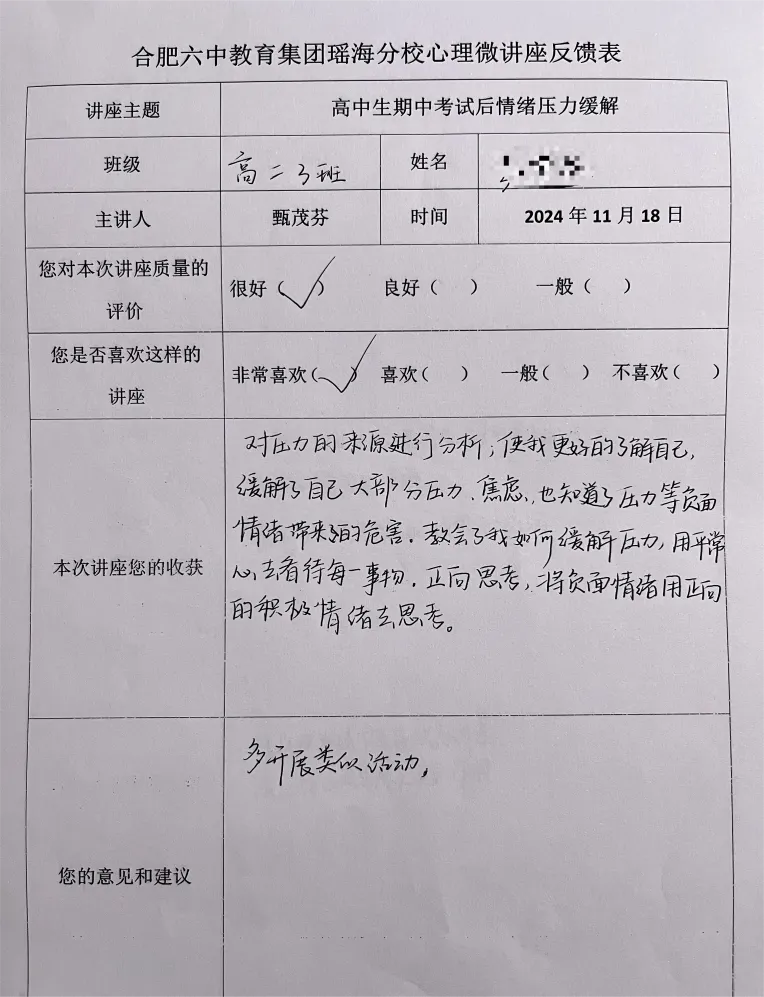 合肥六中教育集团瑶海分校心理微讲座反馈表
讲座主题 高中生期中考试后情绪压力缓解
班级 高二3班 姓名
主讲人 甄茂芬 时间 2024年11月18日
您对本次讲座质量的
评价
很好（✓） 良好（ ） 一般（ ）
您是否喜欢这样的
讲座
非常喜欢(✓) 喜欢( ) 一般( ) 不喜欢( )
本次讲座您的收获
对压力的来源进行分析；使我更好的了解自己，
缓解了自己大部分压力、焦虑、也知道了压力等负面
情绪带来了的危害。教会了我如何缓解压力，用平常
心去看待每一事物。正向思考，将负面情绪用正向
的积极情绪去思考。
您的意见和建议
多开展类似活动，